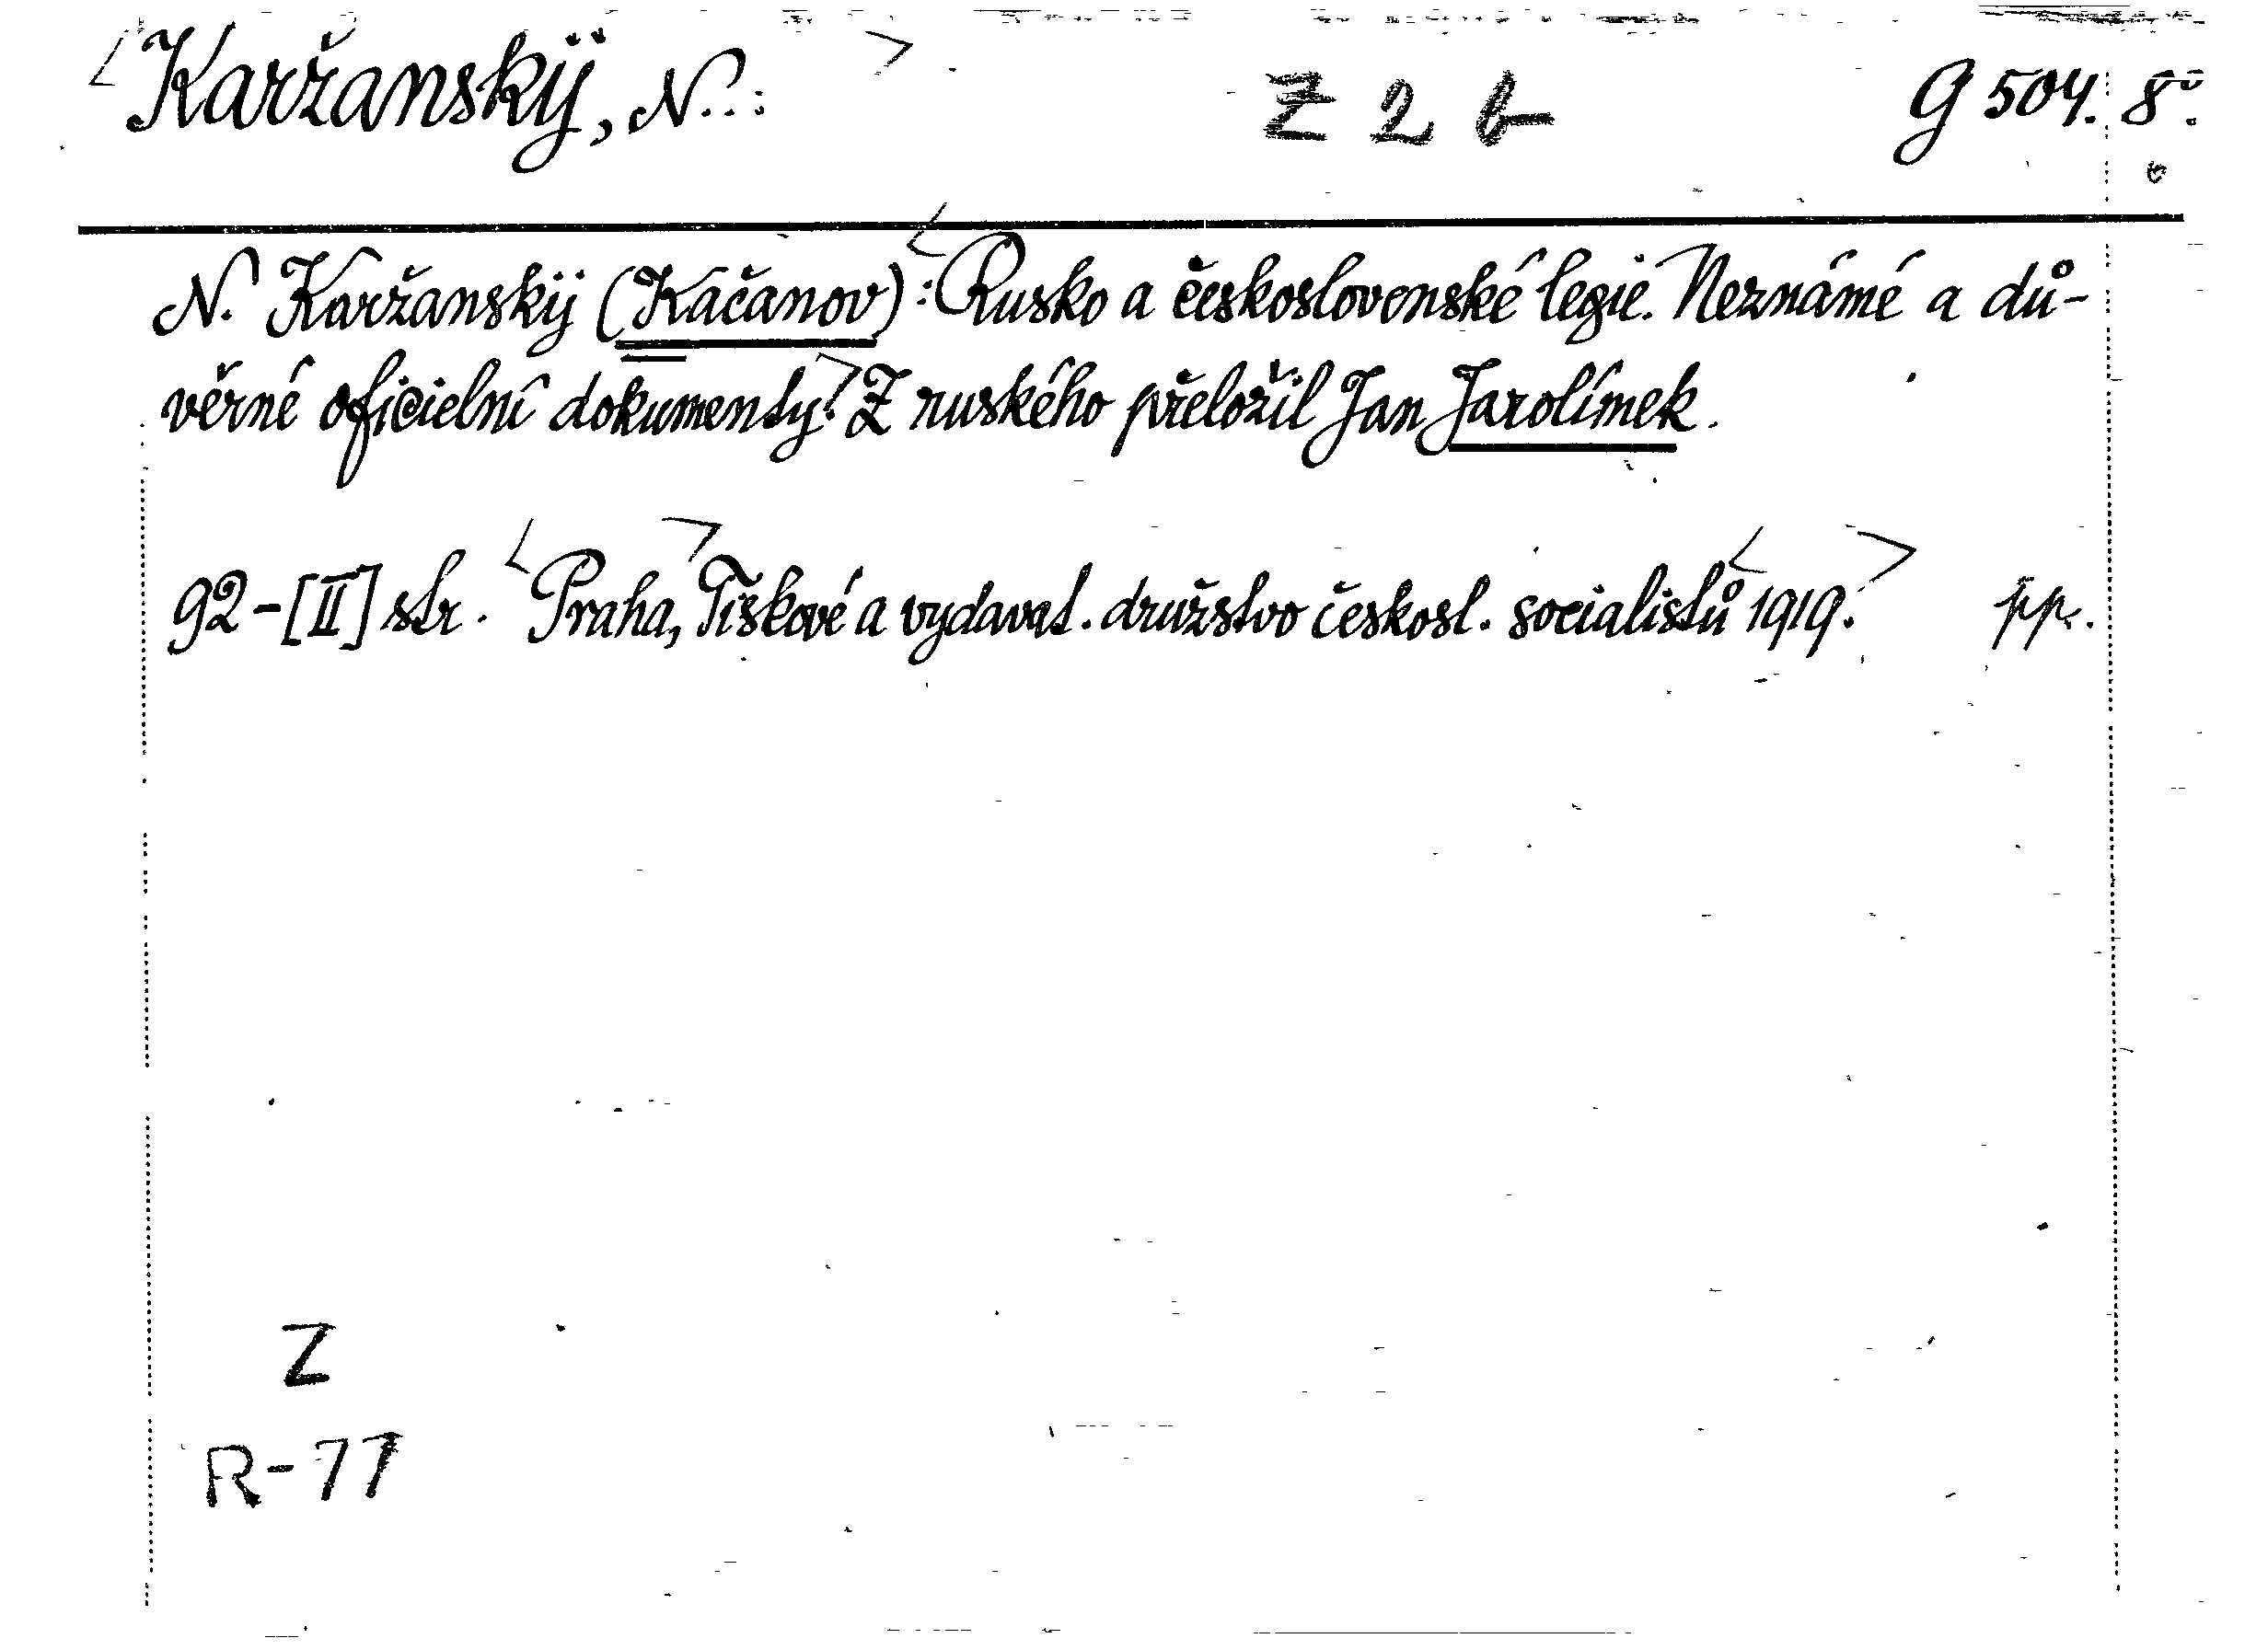 <Karžanskÿ, N..:> Z 2 b G 504. 8°.
N. Karžanskij (Kačanov): <Rusko a československé legie. Neznámé a dů-
věrné oficielní dokumenty.> Z ruského přeložil Jan Jarolímek.
92-[II] str. <Praha,> Tiskové a vydavat. družstvo českosl. socialistů <1919.> pp.
Z
R-77